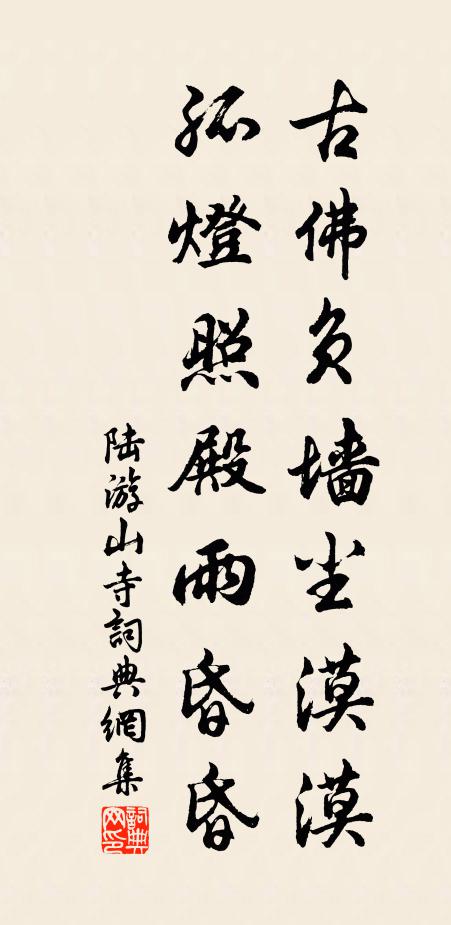 古佛负墙尘漠漠
孤燈照殿雨昏昏
陆游山寺詞典網集
詞典网印